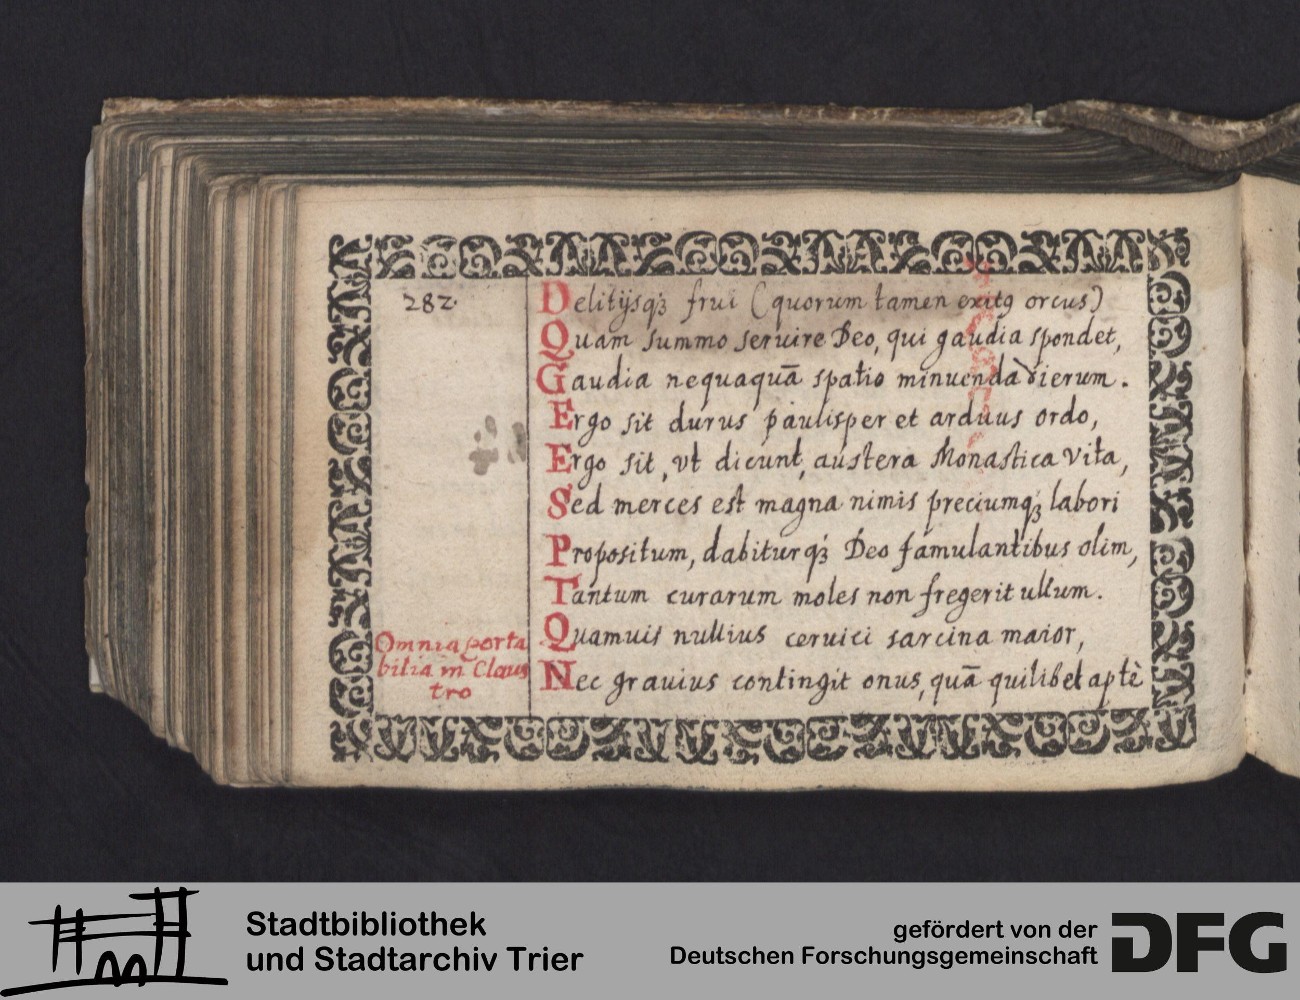 282.
Delitijsq́ꝫ frui (quorum tamen exitꝯ orcus)
Quam summo seruire Deo, qui gaudia spondet,
Gaudia nequaquā spatio minuenda dierum.
Ergo sit durus paulisper et arduus ordo,
Ergo sit, vt dicunt, austera Monastica vita,
Sed merces est magna nimis preciumq́ꝫ labori
Propositum, dabiturq́ꝫ Deo famulantibus olim,
Tantum curarum moles non fregerit ullum.
Omnia porta
bilia in Claus
tro
Quamuis nullius ceruici sarcina maior,
Nec grauius contingit onus, quā quilibet aptè
Stadtbibliothek
und Stadtarchiv Trier
gefördert von der
Deutschen Forschungsgemeinschaft
DFG